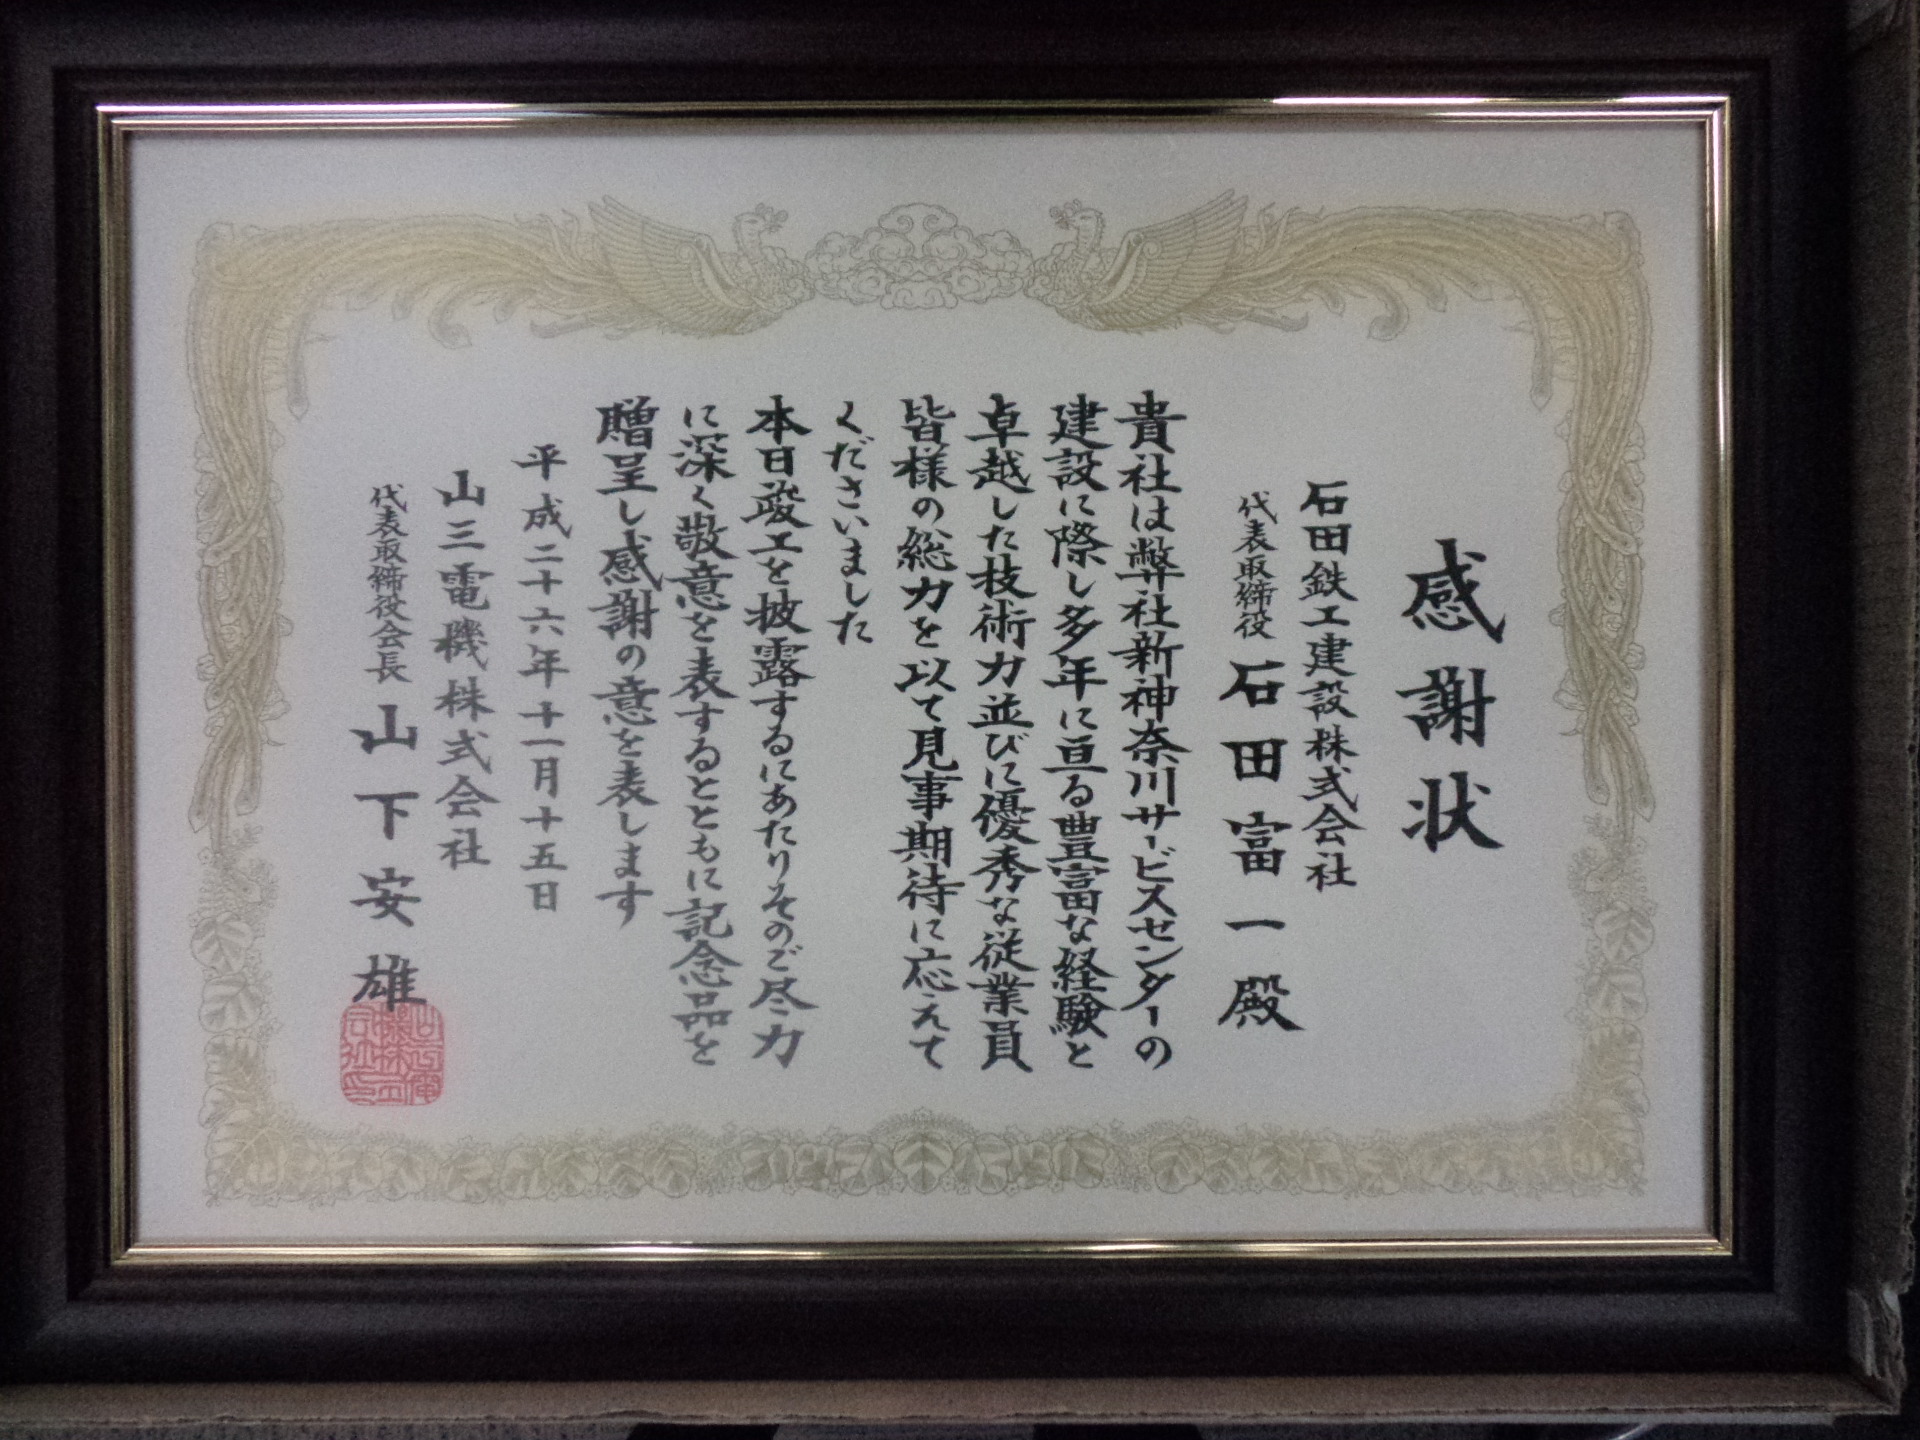 感謝状
石田鉄工建設株式会社
代表取締役 石田富一殿
貴社は弊社新神奈川サービスセンターの
建設に際し多年に亘る豊富な経験と
卓越した技術力並びに優秀な従業員
皆様の総力を以て見事期待に応えて
くださいました
本日竣工を披露するにあたりそのご尽力
に深く敬意を表するとともに記念品を
贈呈し感謝の意を表します
平成二十六年十一月十五日
山三電機株式会社
代表取締役会長 山下安雄